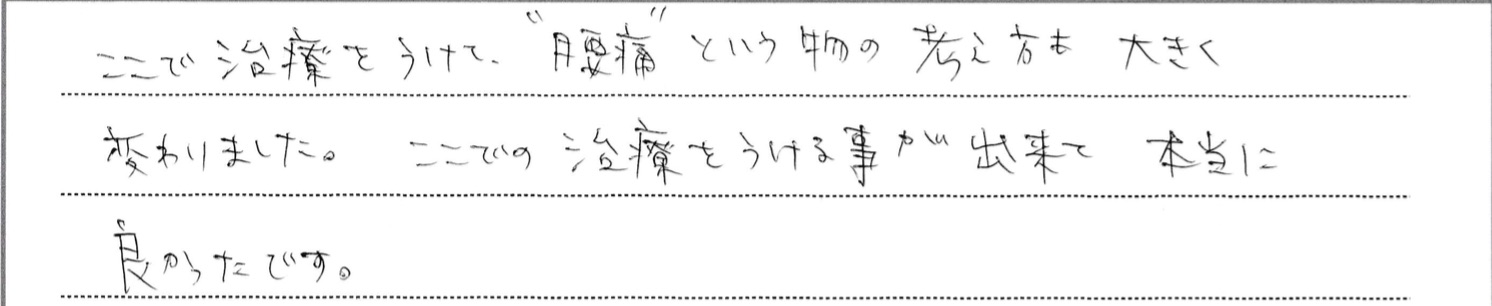 ここで治療をうけて、"腰痛"という物の考え方も大きく
変わりました。ここでの治療をうける事が出来て本当に
良かったです。